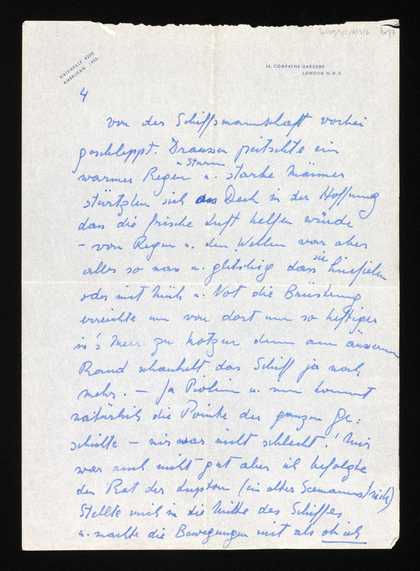 14, COMPAYNE GARDENS
LONDON N.W.6
4
von der Schiffsmannschaft vorbei
geschleppt. Draussen peitschte ein
warmer Regen u. Sturm u. starke Männer
stürtzten sich an Deck in der Hoffnung
dass die frische Luft helfen würde
– von Regen u. den Wellen war aber
alles so nass u. glitschig dass sie hinfielen
oder mit Müh u. Not die Brüstung
erreichte um von dort um so heftiger
in's Meer zu kotzen denn am äusseren
Rand schaukelt das Schiff ja noch
mehr. – Ja u. nun kommt
natürlich die Pointe der ganzen Ge-
schichte – mir war nicht schlecht! Mir
war auch nicht gut aber ich befolgte
den Rat des (ein alter Seemannstrick)
Stellte mich in die Mitte des Schiffes
u. machte die Bewegungen mit als ob ich